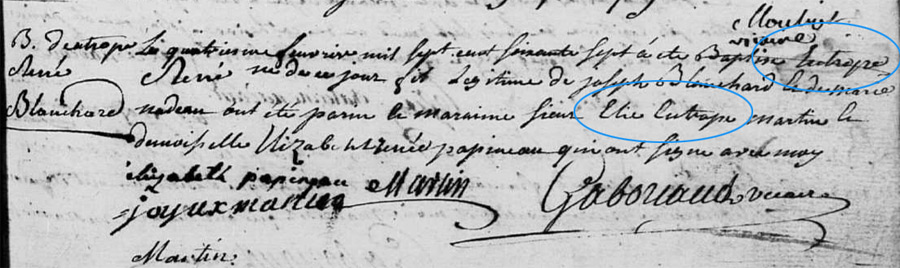 Moulin
B. d'eutrope Le quatriesme fevrier mil sept cent soixante sept a été Baptisé Eutrope
René René né de ce jour fils Legitime de joseph Blanchard et de marie
Blanchard nadeau ont été parin et maraine sieur Elie Eutrope martin et
demoiselle Elizabeth renée papineau qui ont signé avec moy
elizabeth papineau Martin
joyeux martin Gaboriaud vicaire
Martin